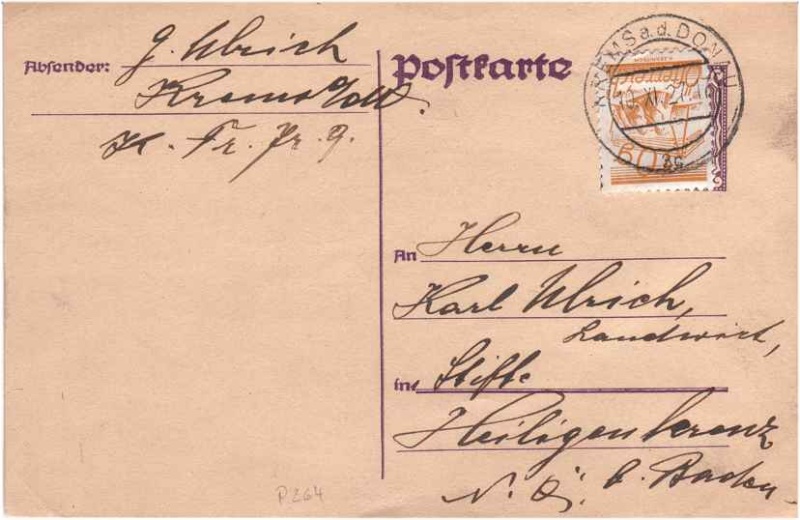 Absender: G. Ulrich
Krems a/d
K. Fr. Pr. 9.
Postkarte
KREMS a.d. DONAU
10. XI. 27.
3c
Österreich
An Herrn
Karl Ulrich,
Landwirt,
in Stift
Heiligenkreuz
N. Ö. b. Baden
P 264